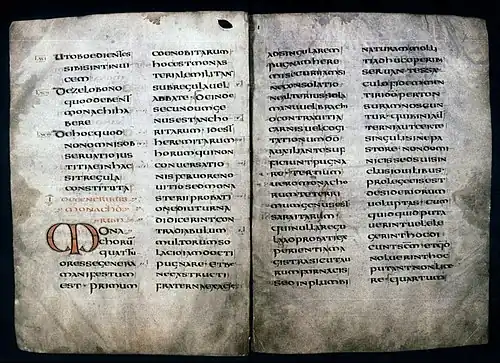 UT OBOEDIENTES
SIBI SINT INUI
CEM
DE ZELO BONO
QUOD DEBENT
MONACHI HA
BERE
DE HOC QUOD
NON OMNIS OB
SERUATIO IUS
TITIAE IN HAC
SIT REGULA
CONSTITUTA
I DE GENERIBUS
MONACHO
RUM
MONA
CHORU
QUATTU
OR ESSE GENERA
MANIFESTUM
EST PRIMUM
COENOBITARUM
HOC EST MONAS
TERIALE MILITANS
SUB REGULA UEL
ABBATE DEINDE
SECUNDUM GE
NUS EST ANCHO
RITARUM ID EST
HEREMITARUM
HORUM QUI NON
CONUERSATIO
NIS FERUORE NO
UITIO SED MONA
STERII PROBATI
ONE DIUTURNA
DIDICERINT CON
TRA DIABULUM
MULTORUM SO
LACIO IAM DOCTI
PUGNARE ET BE
NE EXTRUCTI
FRATERNA EX ACIE
AD SINGULAREM
PUGNAM HERE
MI SECURI IAM SI
NE CONSOLATIO
NE ALTERIUS SOLA
MANU UEL BRACHI
O CONTRA UITIA
CARNIS UEL COGI
TATIONUM DO
AUXILIANTE SUF
FICIUNT PUGNA
RE TERTIUM
UERO MONACHO
RUM TETERRI
MUM GENUS EST
SARABAITARUM
QUI NULLA REGU
LA ADPROBATI EX
PERIENTIA MA
GISTRA SICUT AU
RUM FORNACIS
SED IN PLUMBI
NATURAM MOLLI
TI ADHUC OPERIBUS
SERUANTES SAE
CULO FIDEM MEN
TIRI DEO PER TON
SURAM NOSCUN
TUR QUI BINI AUT
TERNI AUT CERTE
SINGULI SINE PA
STORE NON DOMI
NICIS SED SUIS IN
CLUSI OUILIBUS
PRO LEGE EIS EST
DESIDERIORUM
UOLUPTAS CUM
QUICQUID PUTA
UERINT UEL ELE
GERINT HOC DI
CUNT SCM ET QD
NOLUERINT HOC
PUTANT NON LICE
RE QUARTUM